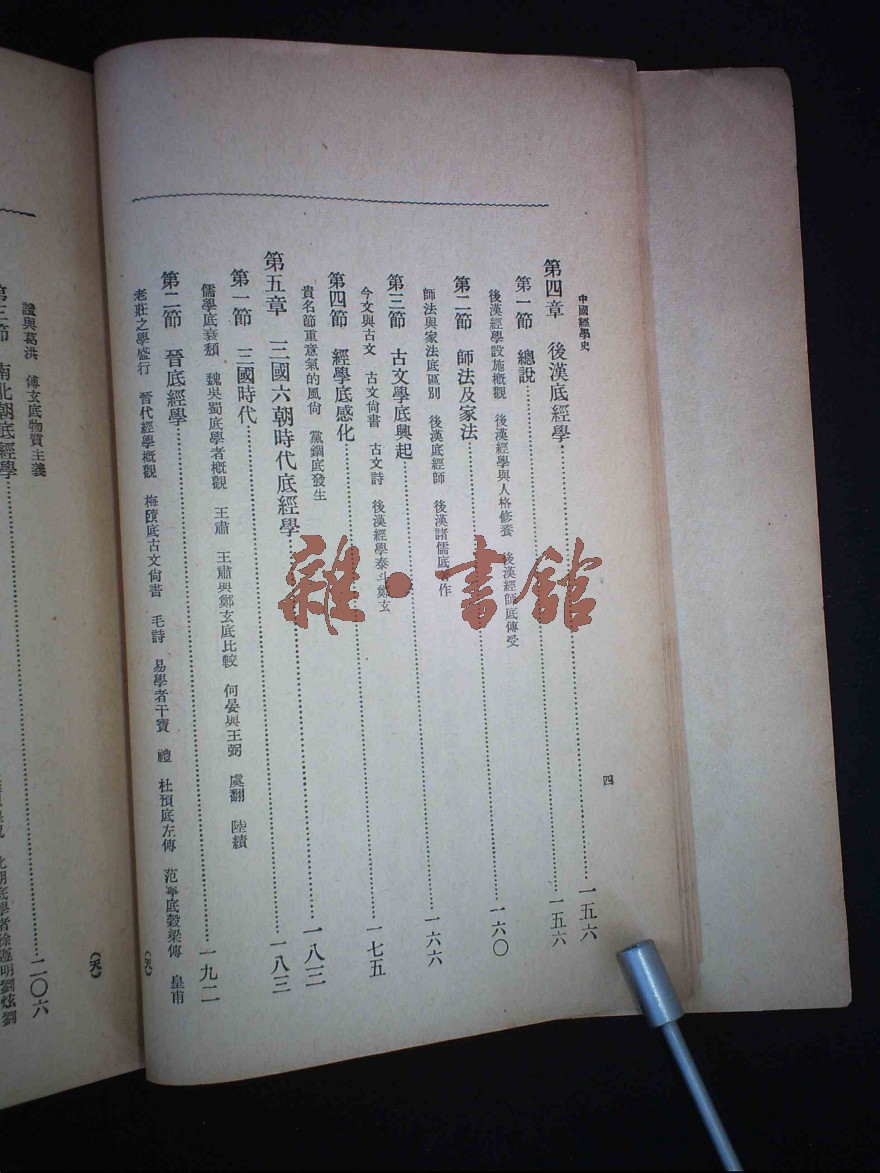 中國經學史
四
第四章 後漢底經學 一五六
第一節 總說 一五六
後漢經學設施概觀 後漢經學與人格修養 後漢經師底傳受
第二節 師法及家法 一六〇
師法與家法底區別 後漢底經師 後漢諸儒底作
第三節 古文學底興起 一六六
今文與古文 古文尙書 古文詩 後漢經學泰斗鄭玄
第四節 經學底感化 一七五
貴名節重意氣的風尙 黨錮底發生
第五章 三國六朝時代底經學 一八三
第一節 三國時代 一八三
儒學底衰頹 魏吳蜀底學者概觀 王肅 王肅與鄭玄底比較 何晏與王弼 虞翻 陸績
第二節 晉底經學 一九二
老莊之學盛行 晉代經學概觀 梅賾底古文尙書 毛詩 易學者干寶 禮 杜預底左傳 范寧底穀梁傳 皇甫
(天)
謐與葛洪 傅玄底物質主義
第三節 南北朝底經學 二〇六
北朝底學者徐遵明劉炫劉
(天)
雜·書館